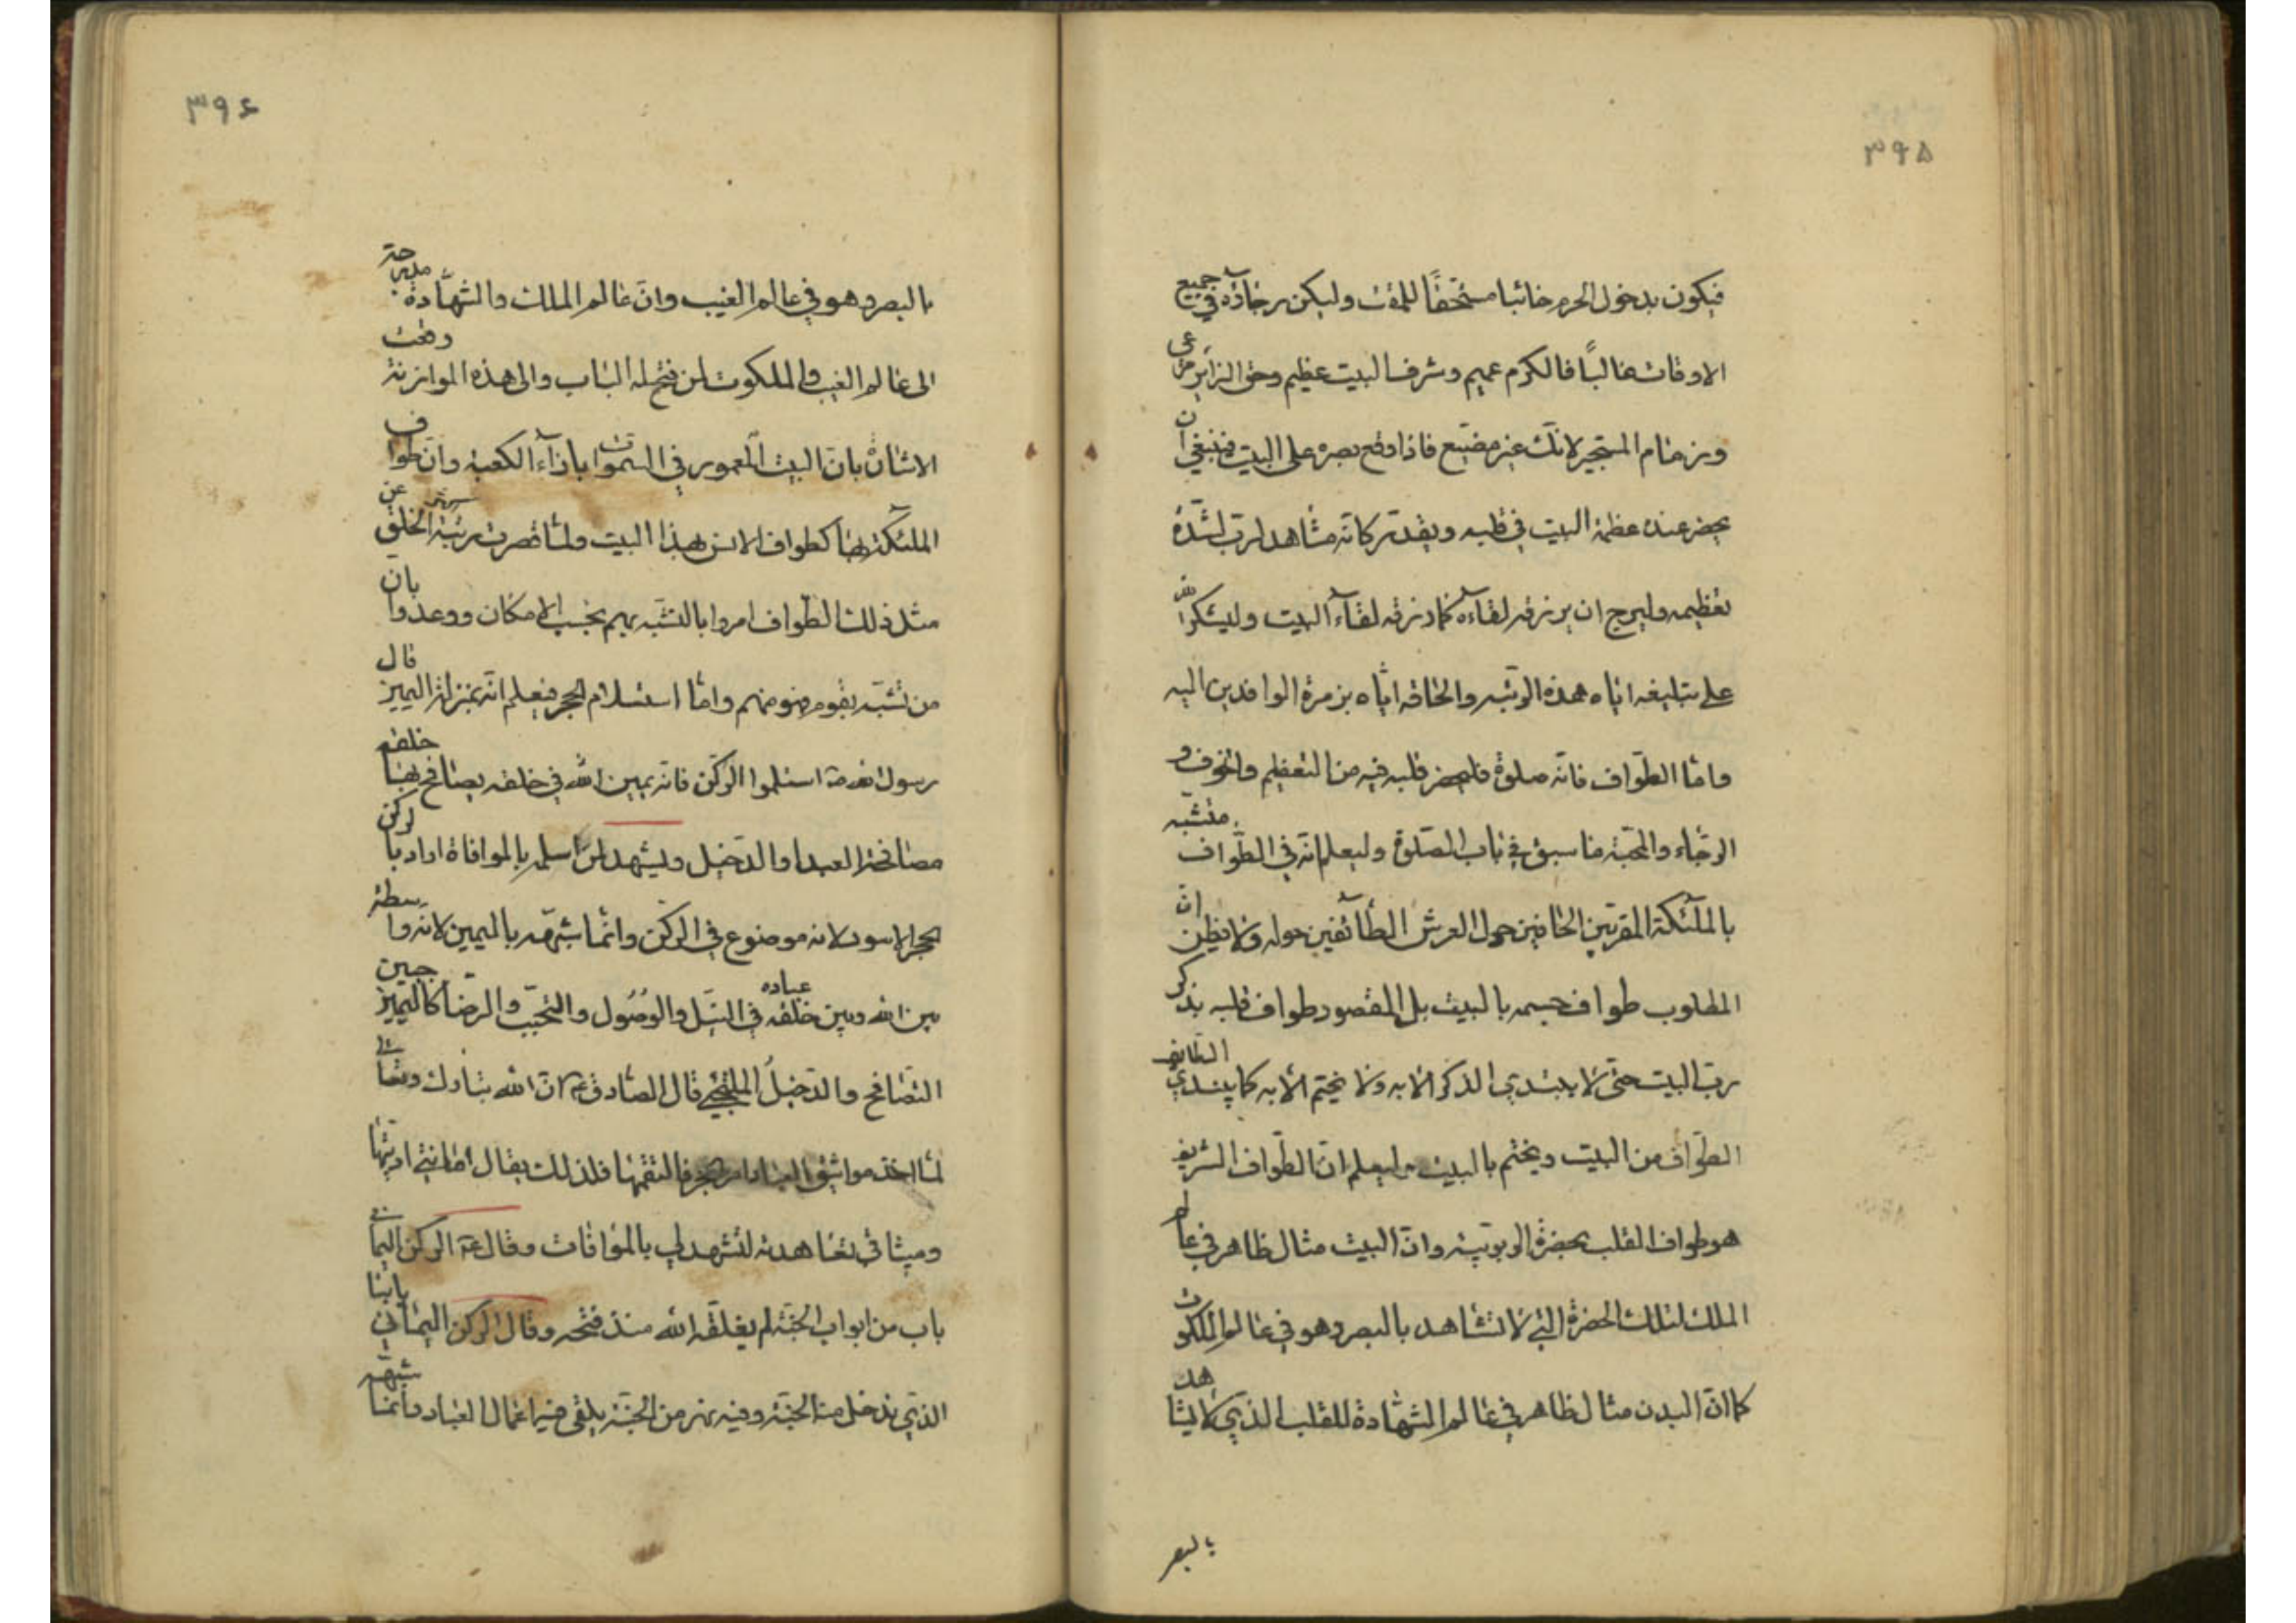 ۳۹۵
فيكون بدخول الحرم خائبا مستحقّا للمقت وليكن رجاؤه في جميع
الاوقات غالبًا فالكرم عميم وشرف البيت عظيم وحق الزائر مرعى
وزمام المستجير لائذ غير مضيع فاذا وقع بصره على البيت فينبغي ان
يحضر عنده عظمة البيت في قلبه ويقدر كانّه مشاهد لرب لشدة
تعظيمه وليرج ان يرزقه لقاءه كما رزقه لقاء البيت وليشكر الله
على تبليغه اياه هذه الرتبه والحاقه اياه بزمرة الوافدين اليه
وامّا الطوّاف فانّه صلوة فليحضر قلبه فيه من التعظيم والخوف و
الرجاء والمحبّة ما سبق في باب الصلوة وليعلم انّه في الطّواف متشبّه
بالملئكة المقربين الحافين حول العرش الطائفين حوله ولا تظنن انّ
المطلوب طواف جسمه بالبيت بل المقصود طواف قلبه بذكر
ربّ البيت حتى لا يبتدي الذكر الا به ولا يختم الا به كما يبتدي الطايف
الطّواف من البيت ويختم بالبيت وليعلم انّ الطّواف الشريف
هو طواف القلب بحضرة الربوبيّة وانّ البيت مثال ظاهر في عالم
الملك لتلك الحضرة التي لا تشاهد بالبصر وهو في عالم الملكوت
كما انّ البدن مثال ظاهر في عالم الشهادة للقلب الذي لا يشاهد
بالبصر
۳۹۶
بالبصر وهو في عالم الغيب وانّ عالم الملك والشهادة مدرجة
الى عالم الغيب والملكوت لمن فتح له الباب والى هذه الموازنة وقعت
الاشارة بانّ البيت المعمور في السموات بازاء الكعبة وانّ طواف
الملئكة بها كطواف الانس بهذا البيت ولمّا قصرت رتبة الخلق عن
مثل ذلك الطّواف امروا بالتشبّه بهم بحسب الامكان ووعدوا بان
من تشبّه بقوم فهو منهم وامّا استلام الحجر فيعلم انّه بمنزلة اليمين قال
رسول الله استلموا الركن فانّه يمين الله في خلقه يصافح بها خلقه
مصافحة العبد او الدّخيل ويشهد لمن استلمه بالموافاة اراد بالركن
الحجر الاسود لانه موضوع في الركن وانّما شبّهه باليمين لانه واسطة
بين الله وبين خلقه عباده في النيل والوصول والتحبّب والرضا كاليمين حين
التصافح والدّخيل الملتجئ قال الصادق ع انّ الله تبارك وتعالى
لمّا اخذ مواثيق العباد امر الحجر فالتقمها فلذلك يقال امانتي اديتها
وميثاقي تعاهدته لتشهد لي بالموافات وقال ع الركن اليماني
باب من ابواب الجنة لم يغلقه الله منذ فتحه وقال الركن اليماني بابنا
الذي ندخل منه الجنّة وفيه نهر من الجنّة يلقى فيه اعمال العباد وانما شبّهه